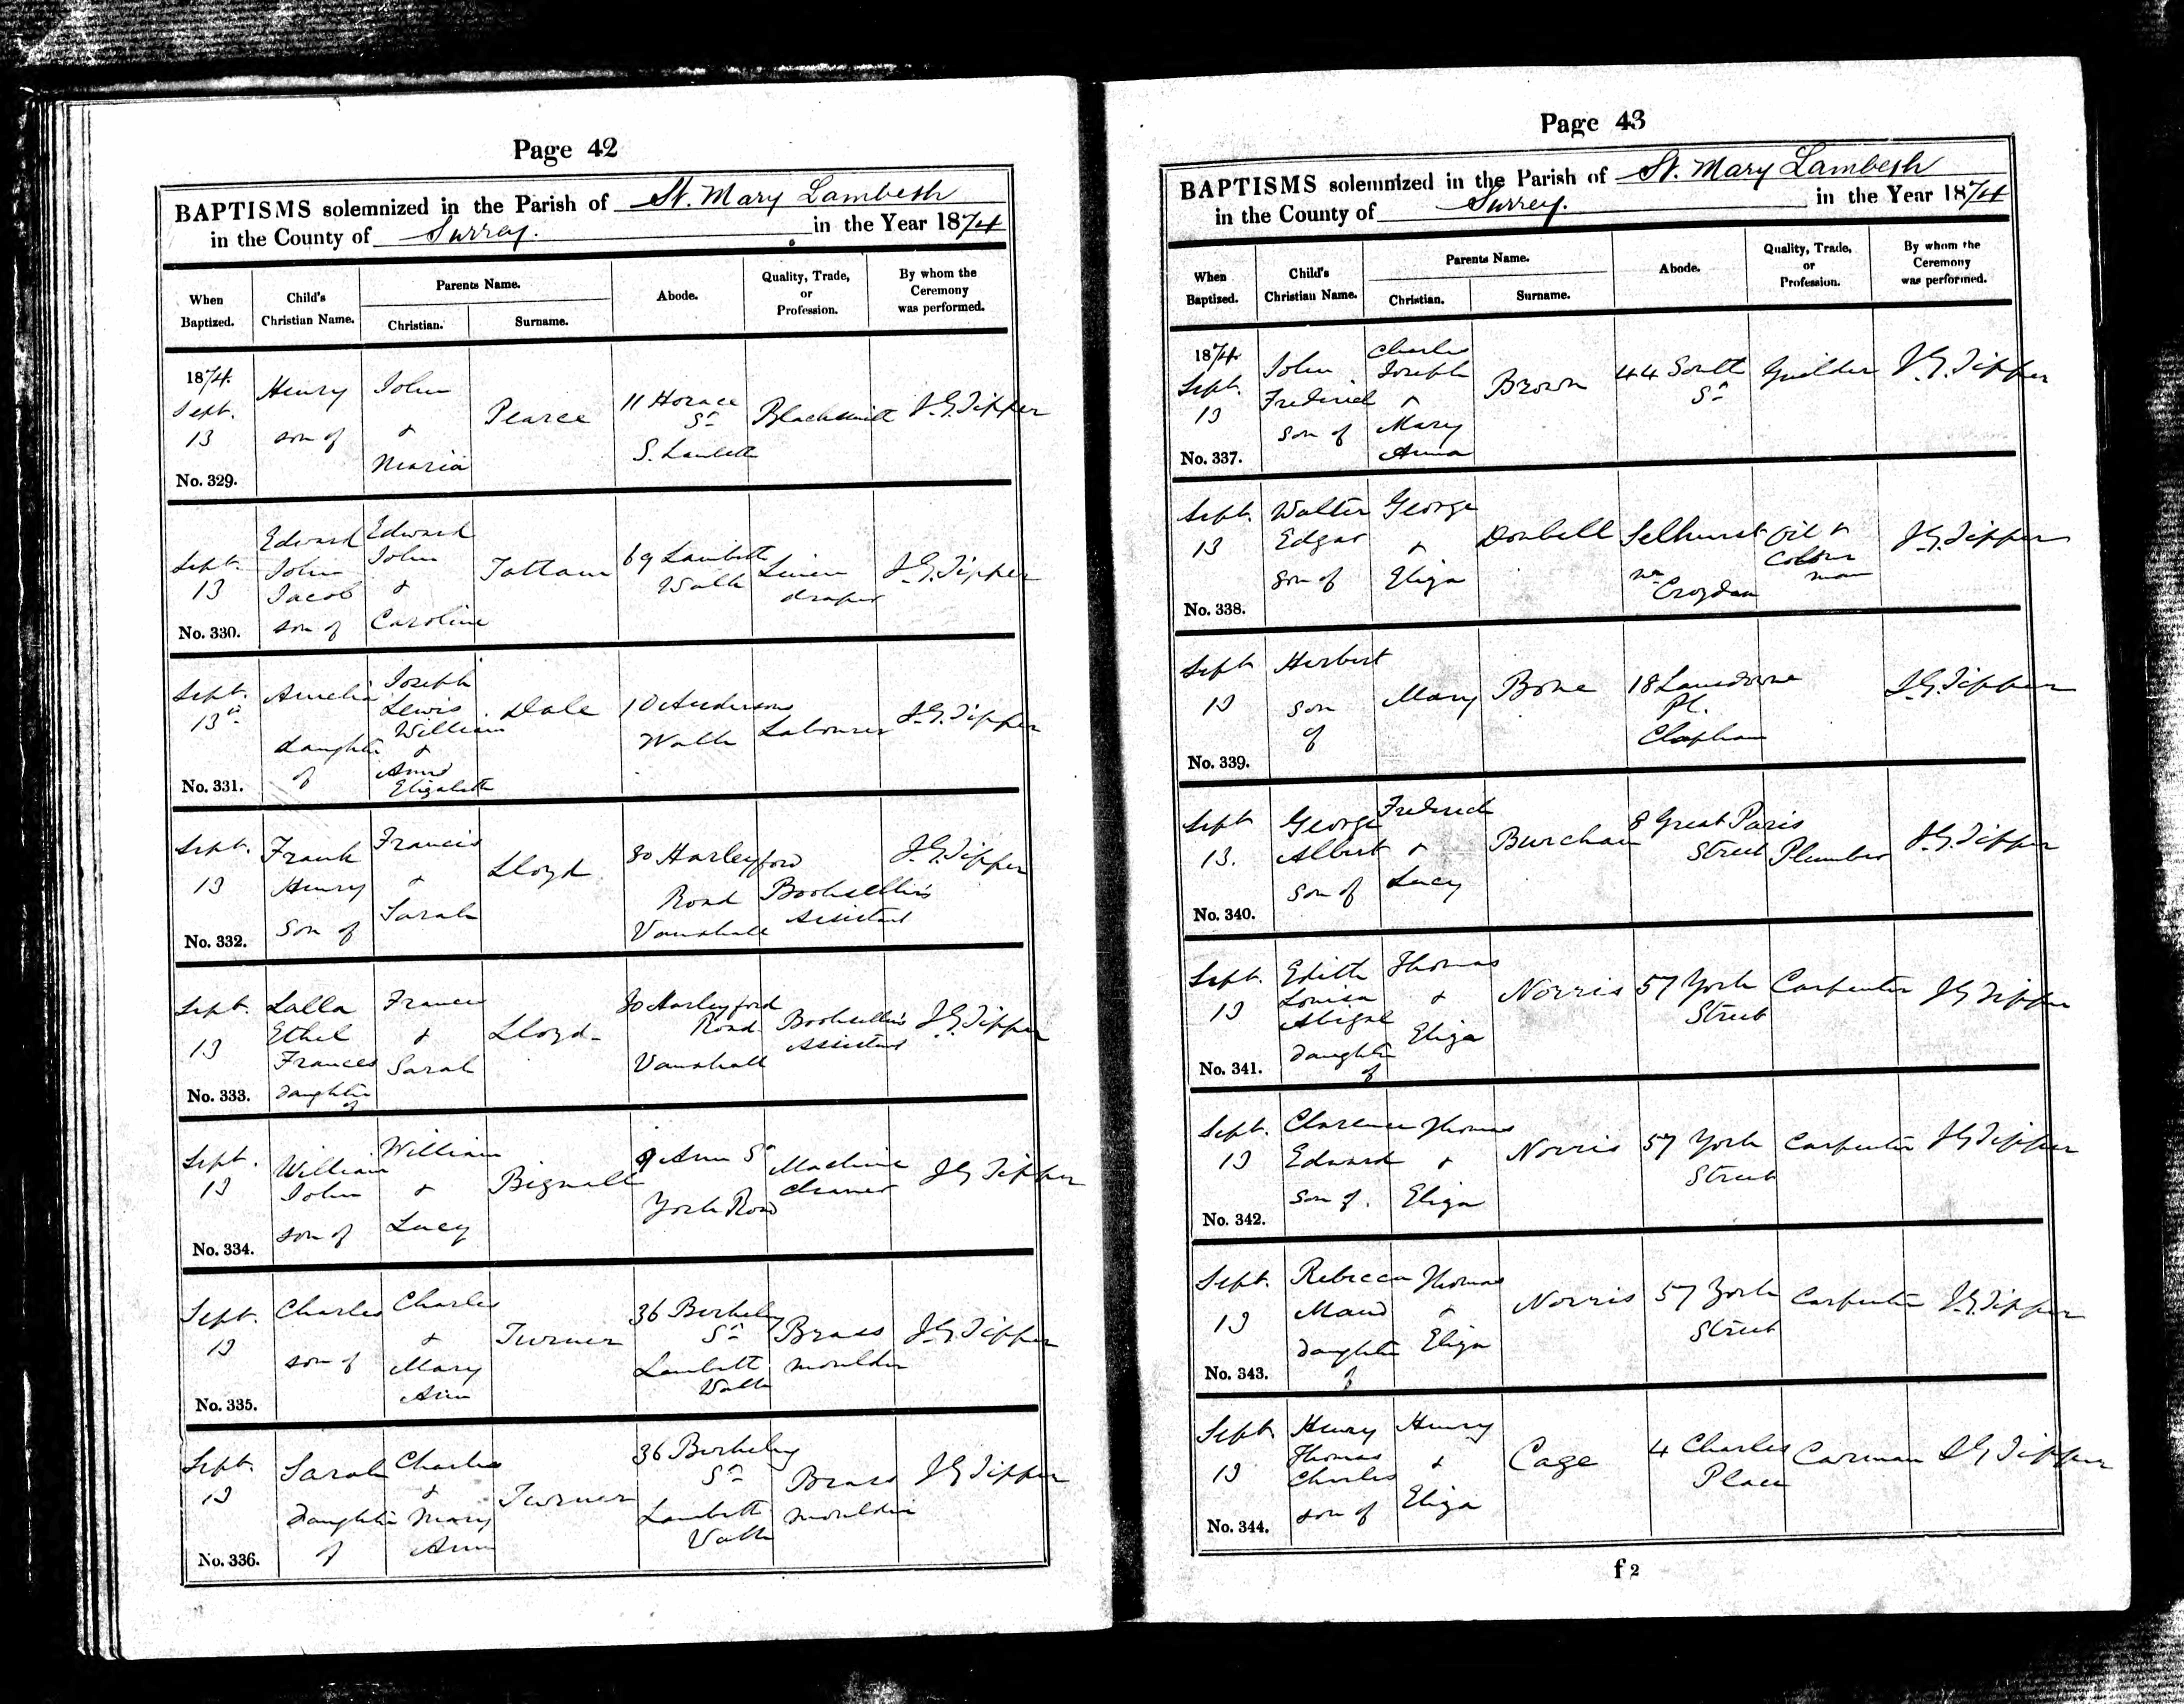 Page 42
BAPTISMS solemnized in the Parish of St. Mary Lambeth
in the County of Surrey. in the Year 1874
When Baptized.
Child's Christian Name.
Parents Name.
Christian.
Surname.
Abode.
Quality, Trade, or Profession.
By whom the Ceremony was performed.
1874. Sept. 13
No. 329.
Henry
son of
John
&
Maria
Pearce
11 Horace
St
S. Lambeth
Blacksmith
J.G. Tipper
Sept. 13
No. 330.
Edward
John
Jacob
son of
Edward
John
&
Caroline
Tattam
69 Lambeth
Walk
Linen
draper
J.G. Tipper
Sept. 13th
No. 331.
Amelia
daughter
of
Joseph
Lewis
William
&
Anne
Elizabeth
Dale
10 Andersons
Walk
Labourer
J.G. Tipper
Sept. 13
No. 332.
Frank
Henry
Son of
Francis
&
Sarah
Lloyd
80 Harleyford
Road
Vauxhall
Bookseller's
Assistant
J.G. Tipper
Sept. 13
No. 333.
Lalla
Ethel
Frances
daughter
of
Francis
&
Sarah
Lloyd
80 Harleyford
Road
Vauxhall
Bookseller's
Assistant
J.G. Tipper
Sept. 13
No. 334.
William
John
son of
William
&
Lucy
Bignall
9 Ann St
York Road
Machine
cleaner
J G Tipper
Sept. 13
No. 335.
Charles
son of
Charles
&
Mary
Ann
Turner
36 Berkeley
St
Lambeth
Walk
Brass
moulder
J.G. Tipper
Sept. 13
No. 336.
Sarah
Daughter
of
Charles
&
Mary
Ann
Turner
36 Berkeley
St
Lambeth
Walk
Brass
moulder
J G Tipper
Page 43
BAPTISMS solemnized in the Parish of St. Mary Lambeth
in the County of Surrey. in the Year 1874
When Baptized.
Child's Christian Name.
Parents Name.
Christian.
Surname.
Abode.
Quality, Trade, or Profession.
By whom the Ceremony was performed.
1874. Sept. 13
No. 337.
John
Frederick
son of
Charles
Joseph
&
Mary
Anna
Brown
44 South
St
Guilder
J.G. Tipper
Sept. 13
No. 338.
Walter
Edgar
son of
George
&
Eliza
Doubell
Selhurst
nr
Croydon
Oil &
Colour
man
J.G. Tipper
Sept 13
No. 339.
Herbert
son
of
Mary
Bone
18 Lansdowne
Pl.
Clapham
J.G. Tipper
Sept 13.
No. 340.
George
Albert
son of
Frederick
&
Lucy
Burcham
8 Great Paris
Street
Plumber
J.G. Tipper
Sept. 13
No. 341.
Edith
Louisa
Abigal
Daughter
of
Thomas
&
Eliza
Norris
57 York
Street
Carpenter
J G Tipper
Sept. 13
No. 342.
Clarence
Edward
son of.
Thomas
&
Eliza
Norris
57 York
Street
Carpenter
J G Tipper
Sept. 13
No. 343.
Rebecca
Maud
Daughter
of
Thomas
&
Eliza
Norris
57 York
Street
Carpenter
J.G. Tipper
Sept. 13
No. 344.
Henry
Thomas
Charles
son of
Henry
&
Eliza
Cage
4 Charles
Place
Carman
J G Tipper
f 2